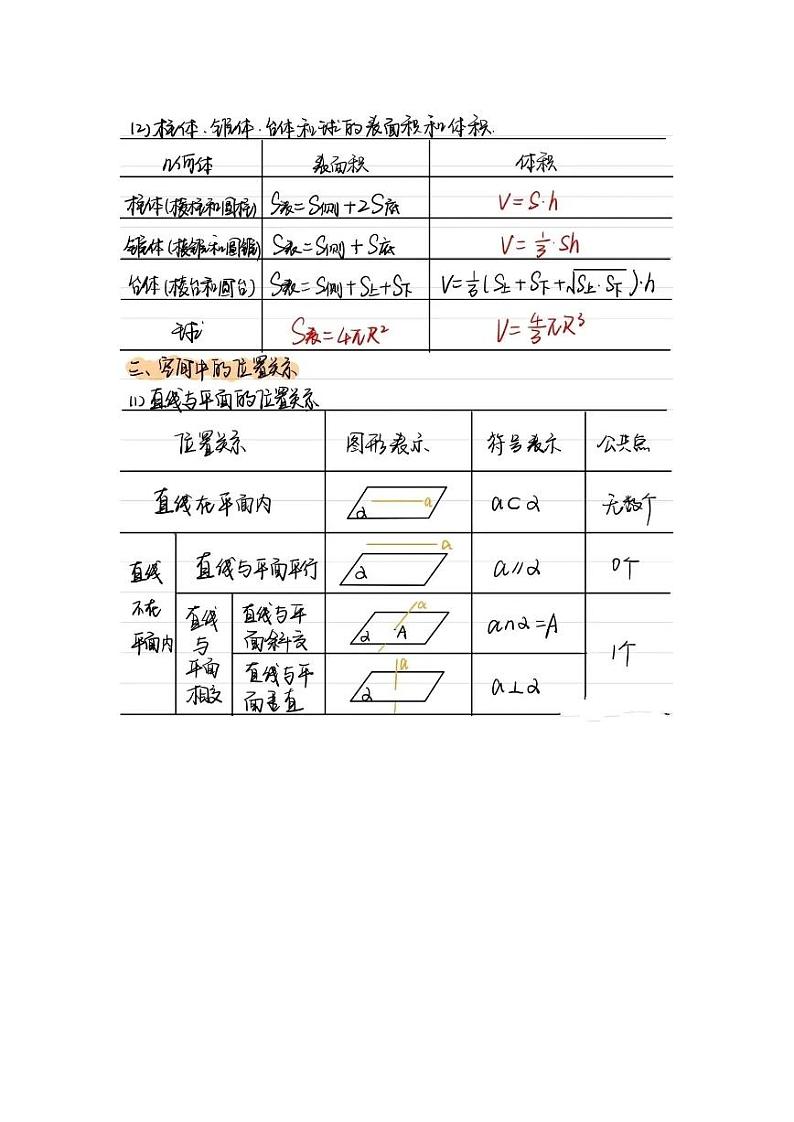 (2)柱体、锥体、台体和球的表面积和体积.
几何体 表面积 体积
柱体(棱柱和圆柱) S表=S侧+2S底 V=S·h
锥体(棱锥和圆锥) S表=S侧+S底 V=1/3·Sh
台体(棱台和圆台) S表=S侧+S上+S下 V=1/3(S上+S下+√S上·S下)·h
球 S表=4πR² V=4/3πR³
二、空间中的位置关系
(1)直线与平面的位置关系
位置关系 图形表示 符号表示 公共点
直线在平面内 α a a⊂α 无数个
直线不在平面内
直线与平面平行 α a a∥α 0个
直线与平面相交
直线与平面斜交 α A a a∩α=A
1个
直线与平面垂直 α a a⊥α